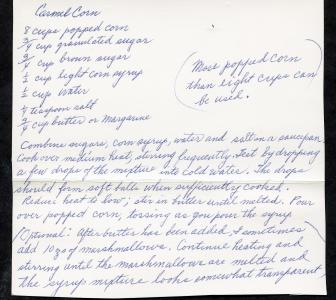 Carmel Corn
8 cups popped corn
3/4 cup granulated sugar
3/4 cup brown sugar
1/2 cup light corn syrup
1/2 cup water
1/4 teaspoon salt
3/4 cup butter or margarine
(More popped corn
than eight cups can
be used.)
Combine sugars, corn syrup, water and salt in a saucepan.
Cook over medium heat, stirring frequently. Test by dropping
a few drops of the mixture into cold water. The drops
should form soft balls when sufficiently cooked.
Reduce heat to low; stir in butter until melted. Pour
over popped corn, tossing as you pour the syrup
(Optional: After butter has been added I sometimes
add 10 oz of marshmallows. Continue heating and
stirring until the marshmallows are melted and
the syrup mixture looks somewhat transparent